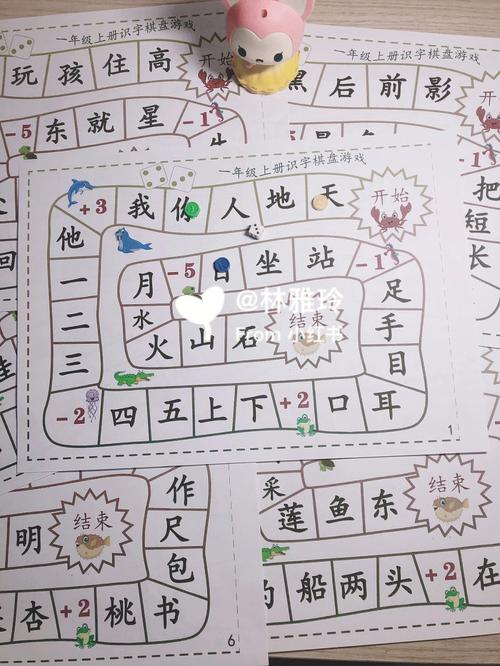 一年级上册识字棋盘游戏
玩 孩 住 高 开始
-5 东 就 星 -1
一年级上册识字棋盘游戏
黑 后 前 影 开始
-1
把
短
长
回
一年级上册识字棋盘游戏
+3 我 你 人 地 天 开始
他 月 -5 日 坐 站 -1
一 水 结束 足
二 火 山 石 手
三 目
-2 四 五 上 下 +2 口 耳
1
@林雅玲
From 小红书
作
明 结束 尺
包
杏 +2 桃 书
6
采
莲 鱼 东 结束
船 两 头 +2 在